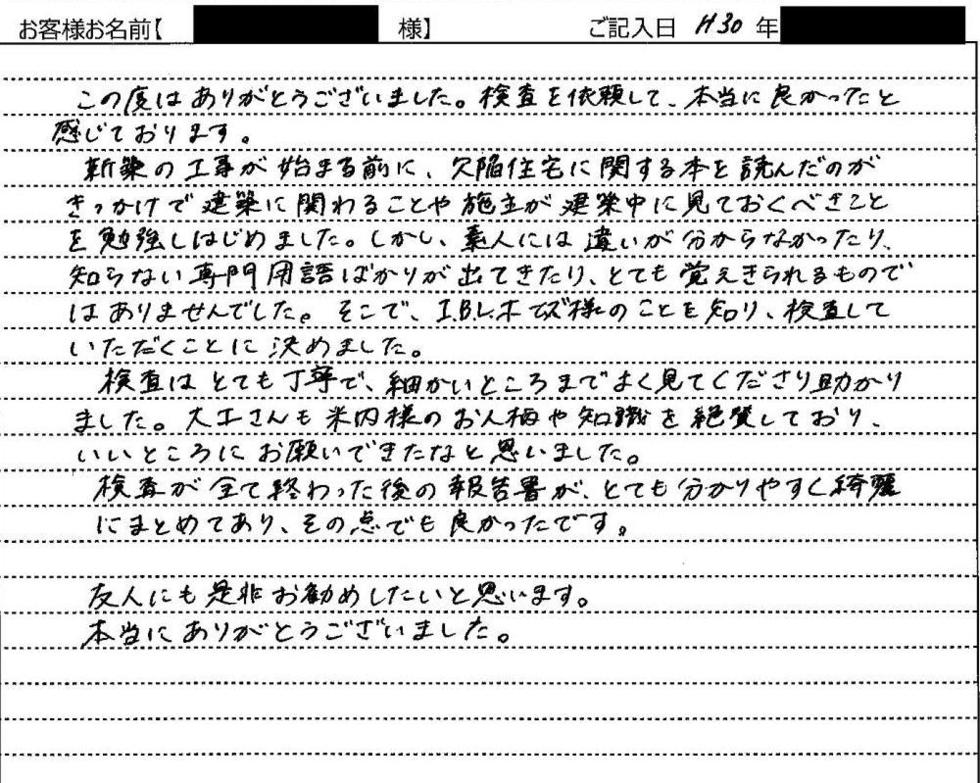 お客様お名前【 様】 ご記入日 H30 年
この度はありがとうございました。検査を依頼して、本当に良かったと
感じております。
新築の工事が始まる前に、欠陥住宅に関する本を読んだのが
きっかけで建築に関わることや施主が建築中に見ておくべきこと
を勉強しはじめました。しかし、素人には違いが分からなかったり、
知らない専門用語ばかりが出てきたり、とても覚えきられるもので
はありませんでした。そこで、I.B.L.ホームズ様のことを知り、検査して
いただくことに決めました。
検査はとても丁寧で、細かいところまでよく見てくださり助かり
ました。大工さんも米内様のお人柄や知識を絶賛しており、
いいところにお願いできたなと思いました。
検査が全て終わった後の報告書が、とても分かりやすく綺麗
にまとめてあり、その点でも良かったです。
友人にも是非お勧めしたいと思います。
本当にありがとうございました。